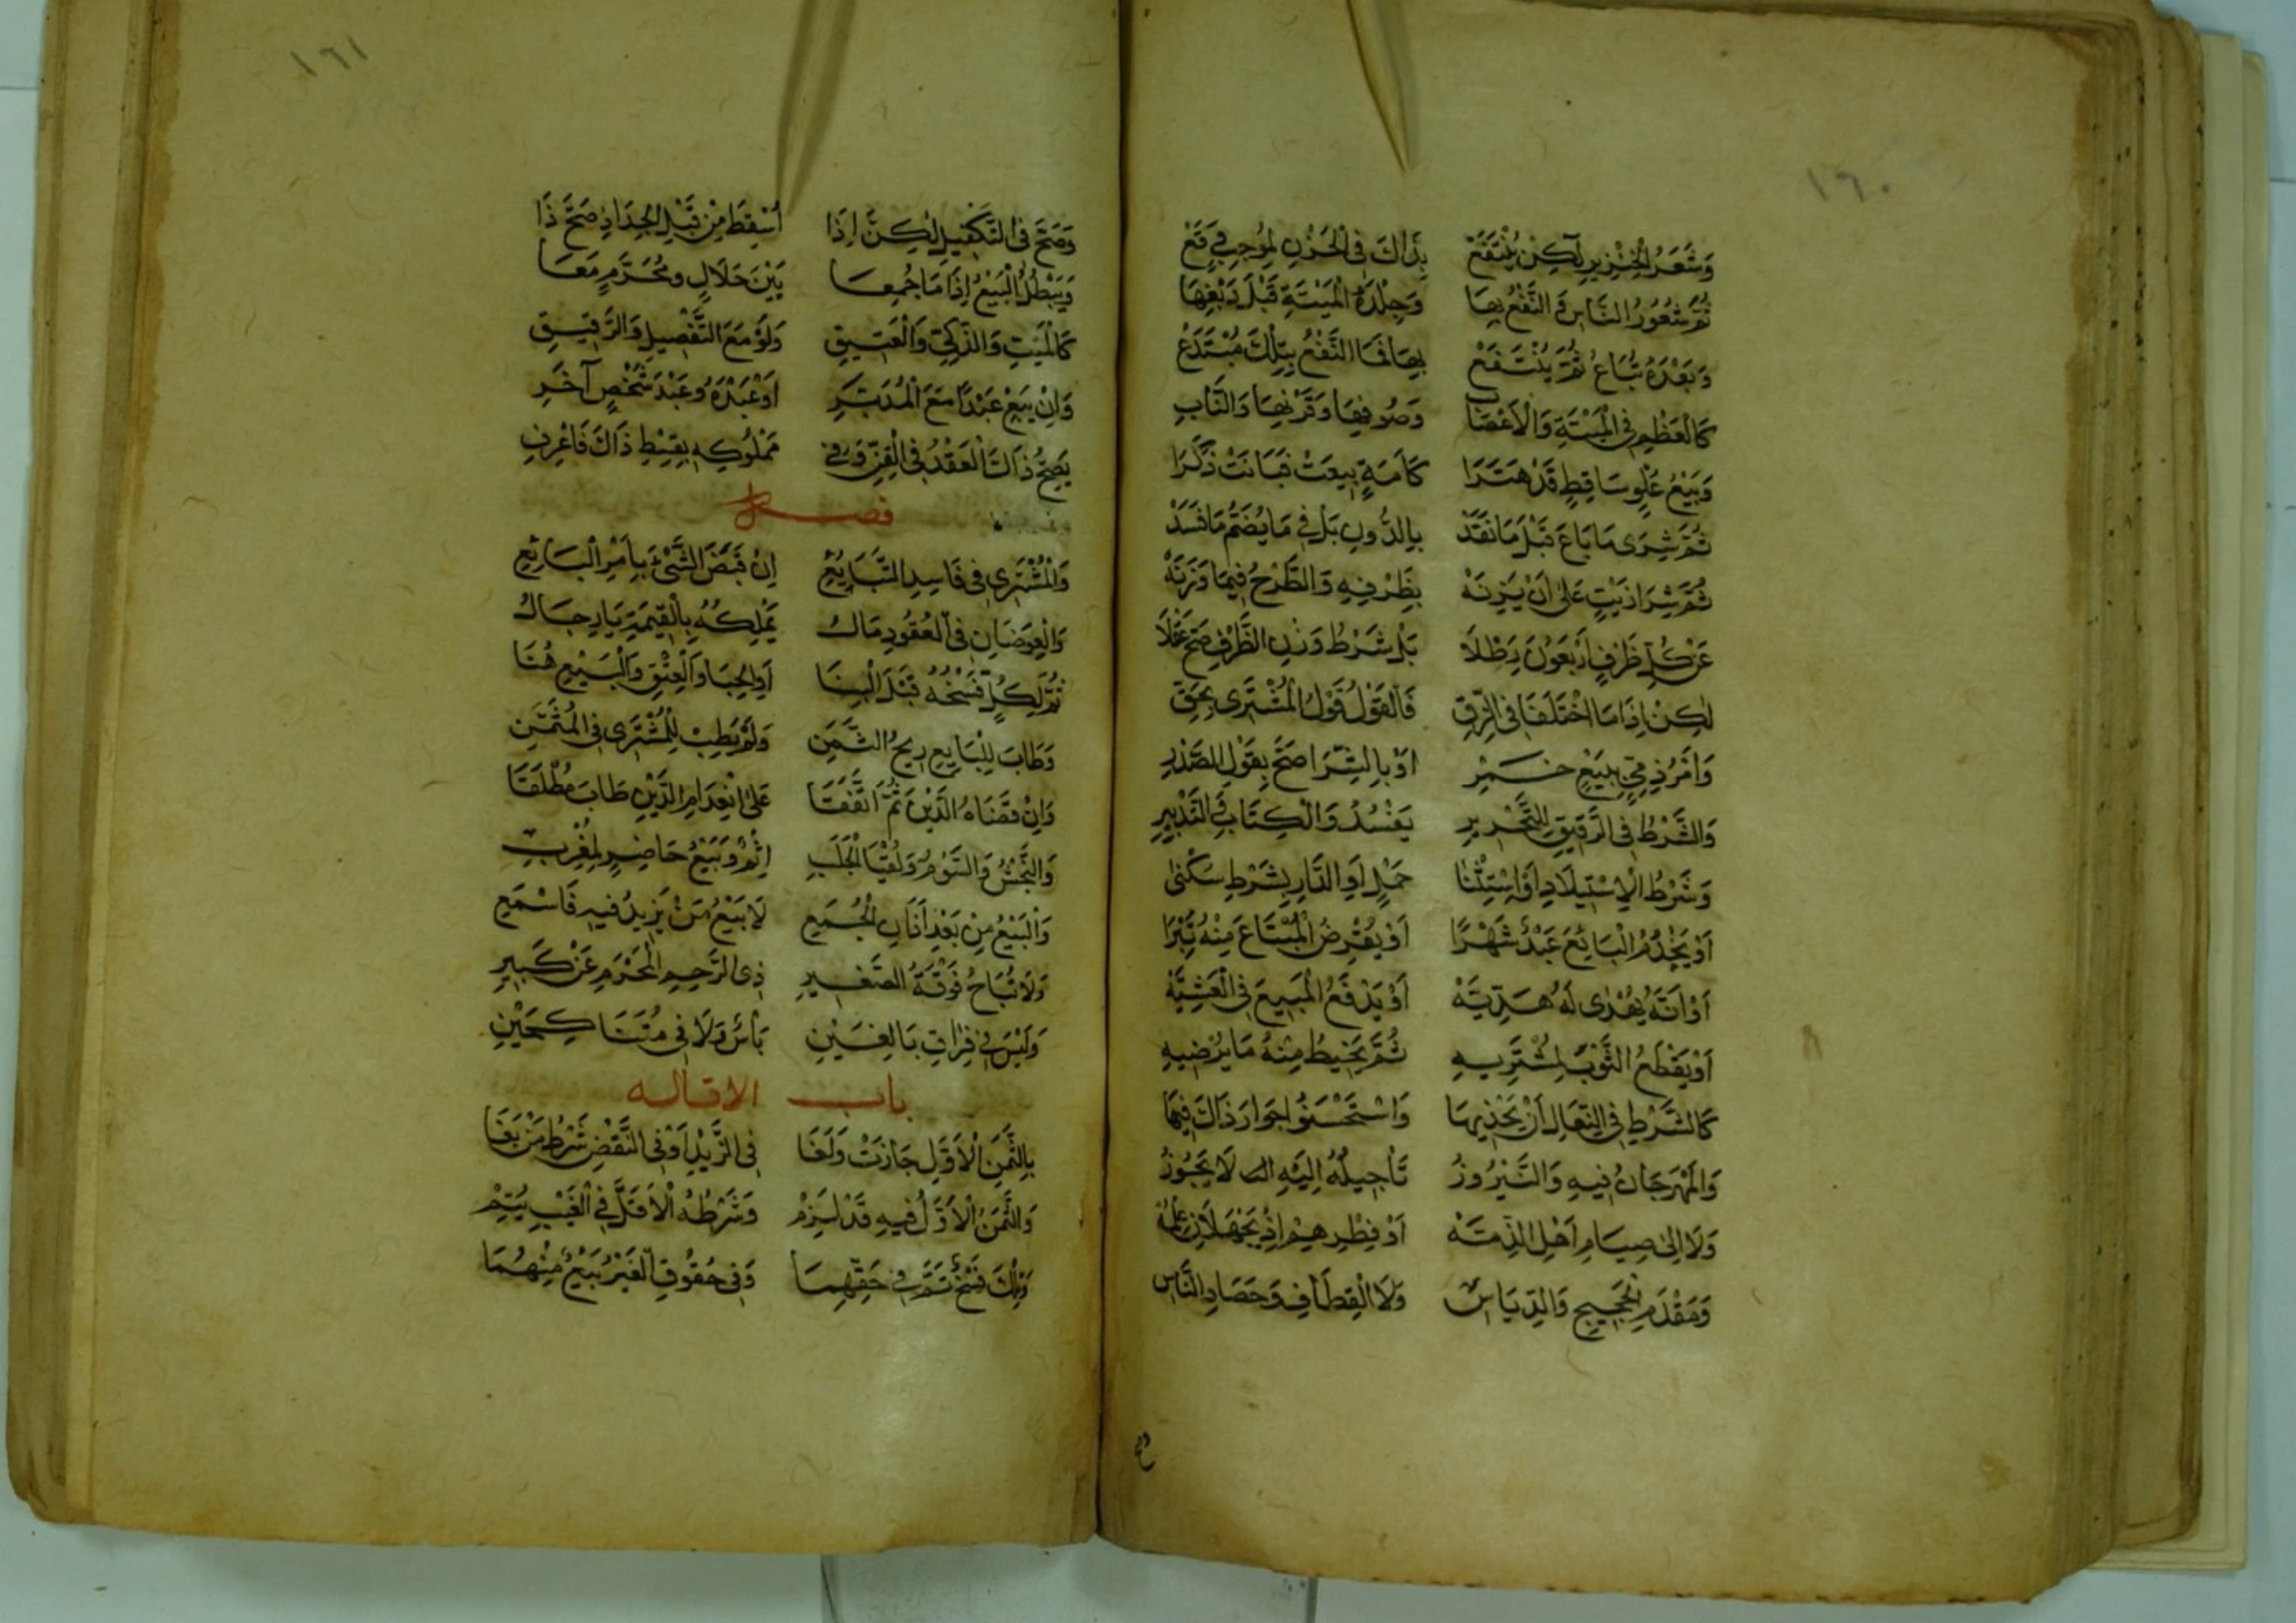 ١٦٠
وَشَعَرُ الْخِنْزِيرِ لٰكِنْ يُنْتَفَعْ بِذَاكَ فِي الْخَرْزِ لِمُوجِبٍ يَقَعْ
ثُمَّ شُعُورُ النَّاسِ وَالنَّفْعُ بِهَا وَجِلْدَةُ الْمَيْتَةِ قَبْلَ دَبْغِهَا
وَبَعْدَهُ تُبَاعُ ثُمَّ يُنْتَفَعْ بِهَا فَمَا النَّفْعُ بِتِلْكَ مُبْتَدَعْ
كَالْعَظْمِ فِي الْمَيْتَةِ وَالْاَعْصَابِ وَصُوفِهَا وَقَرْنِهَا وَالنَّابِ
وَبَيْعُ عُلْوٍ سَاقِطٍ قَدْ هَدَرَا كَأَمَةٍ بِيعَتْ فَبَانَتْ ذَكَرَا
ثُمَّ شِرَى مَا بَاعَ قَبْلَ مَا نَقَدْ بِالدُّونِ بَلْ فِي مَا يُضَمُّ مَا فَسَدْ
ثُمَّ شِرَا زَيْتٍ عَلٰى اَنْ يَزِنَهْ بِظَرْفِهِ وَالطَّرْحُ فِيمَا وَزَنَهْ
عَنْ كُلِّ ظَرْفٍ اَرْبَعُونَ رِطْلَا بَلْ شَرْطُ وَزْنِ الظَّرْفِ صَحَّ عَقْلَا
لٰكِنْ اِذَا مَا اخْتَلَفَا فِي الزِّقِّ فَالْقَوْلُ قَوْلُ الْمُشْتَرِى بِحَقِّ
وَاَمْرُ ذِمِّيٍّ بِبَيْعِ خَمْرِ اَوْ بِالشِّرَا صَحَّ بِقَوْلِ الصَّدْرِ
وَالشَّرْطُ فِي الرَّقِيقِ لِلتَّحْرِيرِ يَفْسُدُ وَالْكِتَابِ فِي التَّدْبِيرِ
وَشَرْطُ الْاِسْتِيلَادِ اَوِ اسْتِثْنَا حَمْلٍ اَوِ الدَّارِ بِشَرْطِ سُكْنٰى
اَوْ يَخْدُمُ الْبَائِعَ عَبْدٌ شَهْرًا اَوْ يُقْرِضُ الْمُبْتَاعَ مِنْهُ تِبْرَا
اَوْ اَنَّهُ يُهْدٰى لَهُ هَدِيَّهْ اَوْ يَدْفَعُ الْمَبِيعَ فِي الْعَشِيَّهْ
اَوْ يَقْطَعُ الثَّوْبَ لِمُشْتَرِيهِ ثُمَّ يَخِيطُ مِنْهُ مَا يُرْضِيهِ
كَالشَّرْطِ فِي النِّعَالِ اَنْ يَحْذِيهَا وَاسْتَحْسَنُوا جَوَازَ ذَاكَ فِيهَا
وَالْمِهْرَجَانُ فِيهِ وَالنَّيْرُوزُ تَأْجِيلُهُ اِلَيْهِ لَا يَجُوزُ
وَلَا اِلٰى صِيَامِ اَهْلِ الذِّمَّهْ اَوْ فِطْرِهِمْ اِذْ يَجْهَلَانِ عِلْمَهْ
وَمَقْدَمِ الْحَجِيجِ وَالدِّيَاسِ وَلَا الْقِطَافِ وَحَصَادِ النَّاسِ
١٦١
وَصَحَّ فِي التَّكْفِيلِ لٰكِنْ اِذَا اُسْقِطَ مِنْ قَبْلِ الْجِدَادِ صَحَّ ذَا
وَيَبْطُلُ الْبَيْعُ اِذَا مَا جُمِعَا بَيْنَ حَلَالٍ وَمُحَرَّمٍ مَعَا
كَالْمَيْتِ وَالذَّكِيِّ وَالْعَتِيقِ وَلَوْ مَعَ التَّفْصِيلِ وَالرَّقِيقِ
وَاِنْ يَبِعْ عَبْدًا مَعَ الْمُدَبَّرِ اَوْ عَبْدَهُ وَعَبْدَ شَخْصٍ آخَرِ
يَصِحُّ ذَاكَ الْعَقْدُ فِي الْقِنِّ وَفِي مَمْلُوكِهِ بِقِسْطِ ذَاكَ فَاعْرِفِ
فصل
وَالْمُشْتَرِى فِي فَاسِدِ التَّبَايُعِ اِنْ قَبَضَ الشَّىْءَ بِاَمْرِ الْبَائِعِ
وَالْعِوَضَانِ فِي الْعُقُودِ مَالُ يَمْلِكُهُ بِالْقِيمَةِ يَا رِجَالُ
ثُمَّ لِكُلٍّ فَسْخُهُ قَبْلَ الْبِنَا اَوِ الْحِبَا وَالْعِتْقِ وَالْبَيْعِ هُنَا
وَطَابَ لِلْبَايِعِ رِبْحُ الثَّمَنِ وَلَمْ يَطِبْ لِلْمُشْتَرِى فِي الْمُثْمَنِ
وَاِنْ قَضَاهُ الدَّيْنَ ثُمَّ اتَّفَقَا عَلَى انْعِدَامِ الدَّيْنِ طَابَ مُطْلَقَا
وَالنَّجْشُ وَالسَّوْمُ وَلُقْيَا الْجَلَبِ اِثْمٌ وَبَيْعُ حَاضِرٍ لِمُغْرِبِ
وَالْبَيْعُ مِنْ بَعْدِ اَذَانِ الْجُمَعِ لَا بَيْعُ مَنْ يَزِيدُ فِيهِ فَاسْمَعِ
وَلَا تُبَاحُ فُرْقَةُ الصَّغِيرِ ذِى الرَّحِمِ الْمَحْرَمِ عَنْ كَبِيرِ
وَلَيْسَ فِي فِرَاقِ بَالِغَيْنِ بَأْسٌ وَلَا فِي مُتَنَاكِحَيْنِ
باب الاقاله
بِالثَّمَنِ الْاَوَّلِ جَازَتْ وَلَغَا فِي الزَّيْدِ اَوْ فِي النَّقْصِ شَرْطُ مَنْ بَغَا
وَالثَّمَنُ الْاَوَّلُ فِيهِ قَدْ لَزِمْ وَشَرْطُهُ الْاَقَلَّ فِي الْعَيْبِ يَتِمْ
وَتِلْكَ فَسْخٌ تَمَّ فِي حَقِّهِمَا وَفِي حُقُوقِ الْغَيْرِ بَيْعٌ مِنْهُمَا